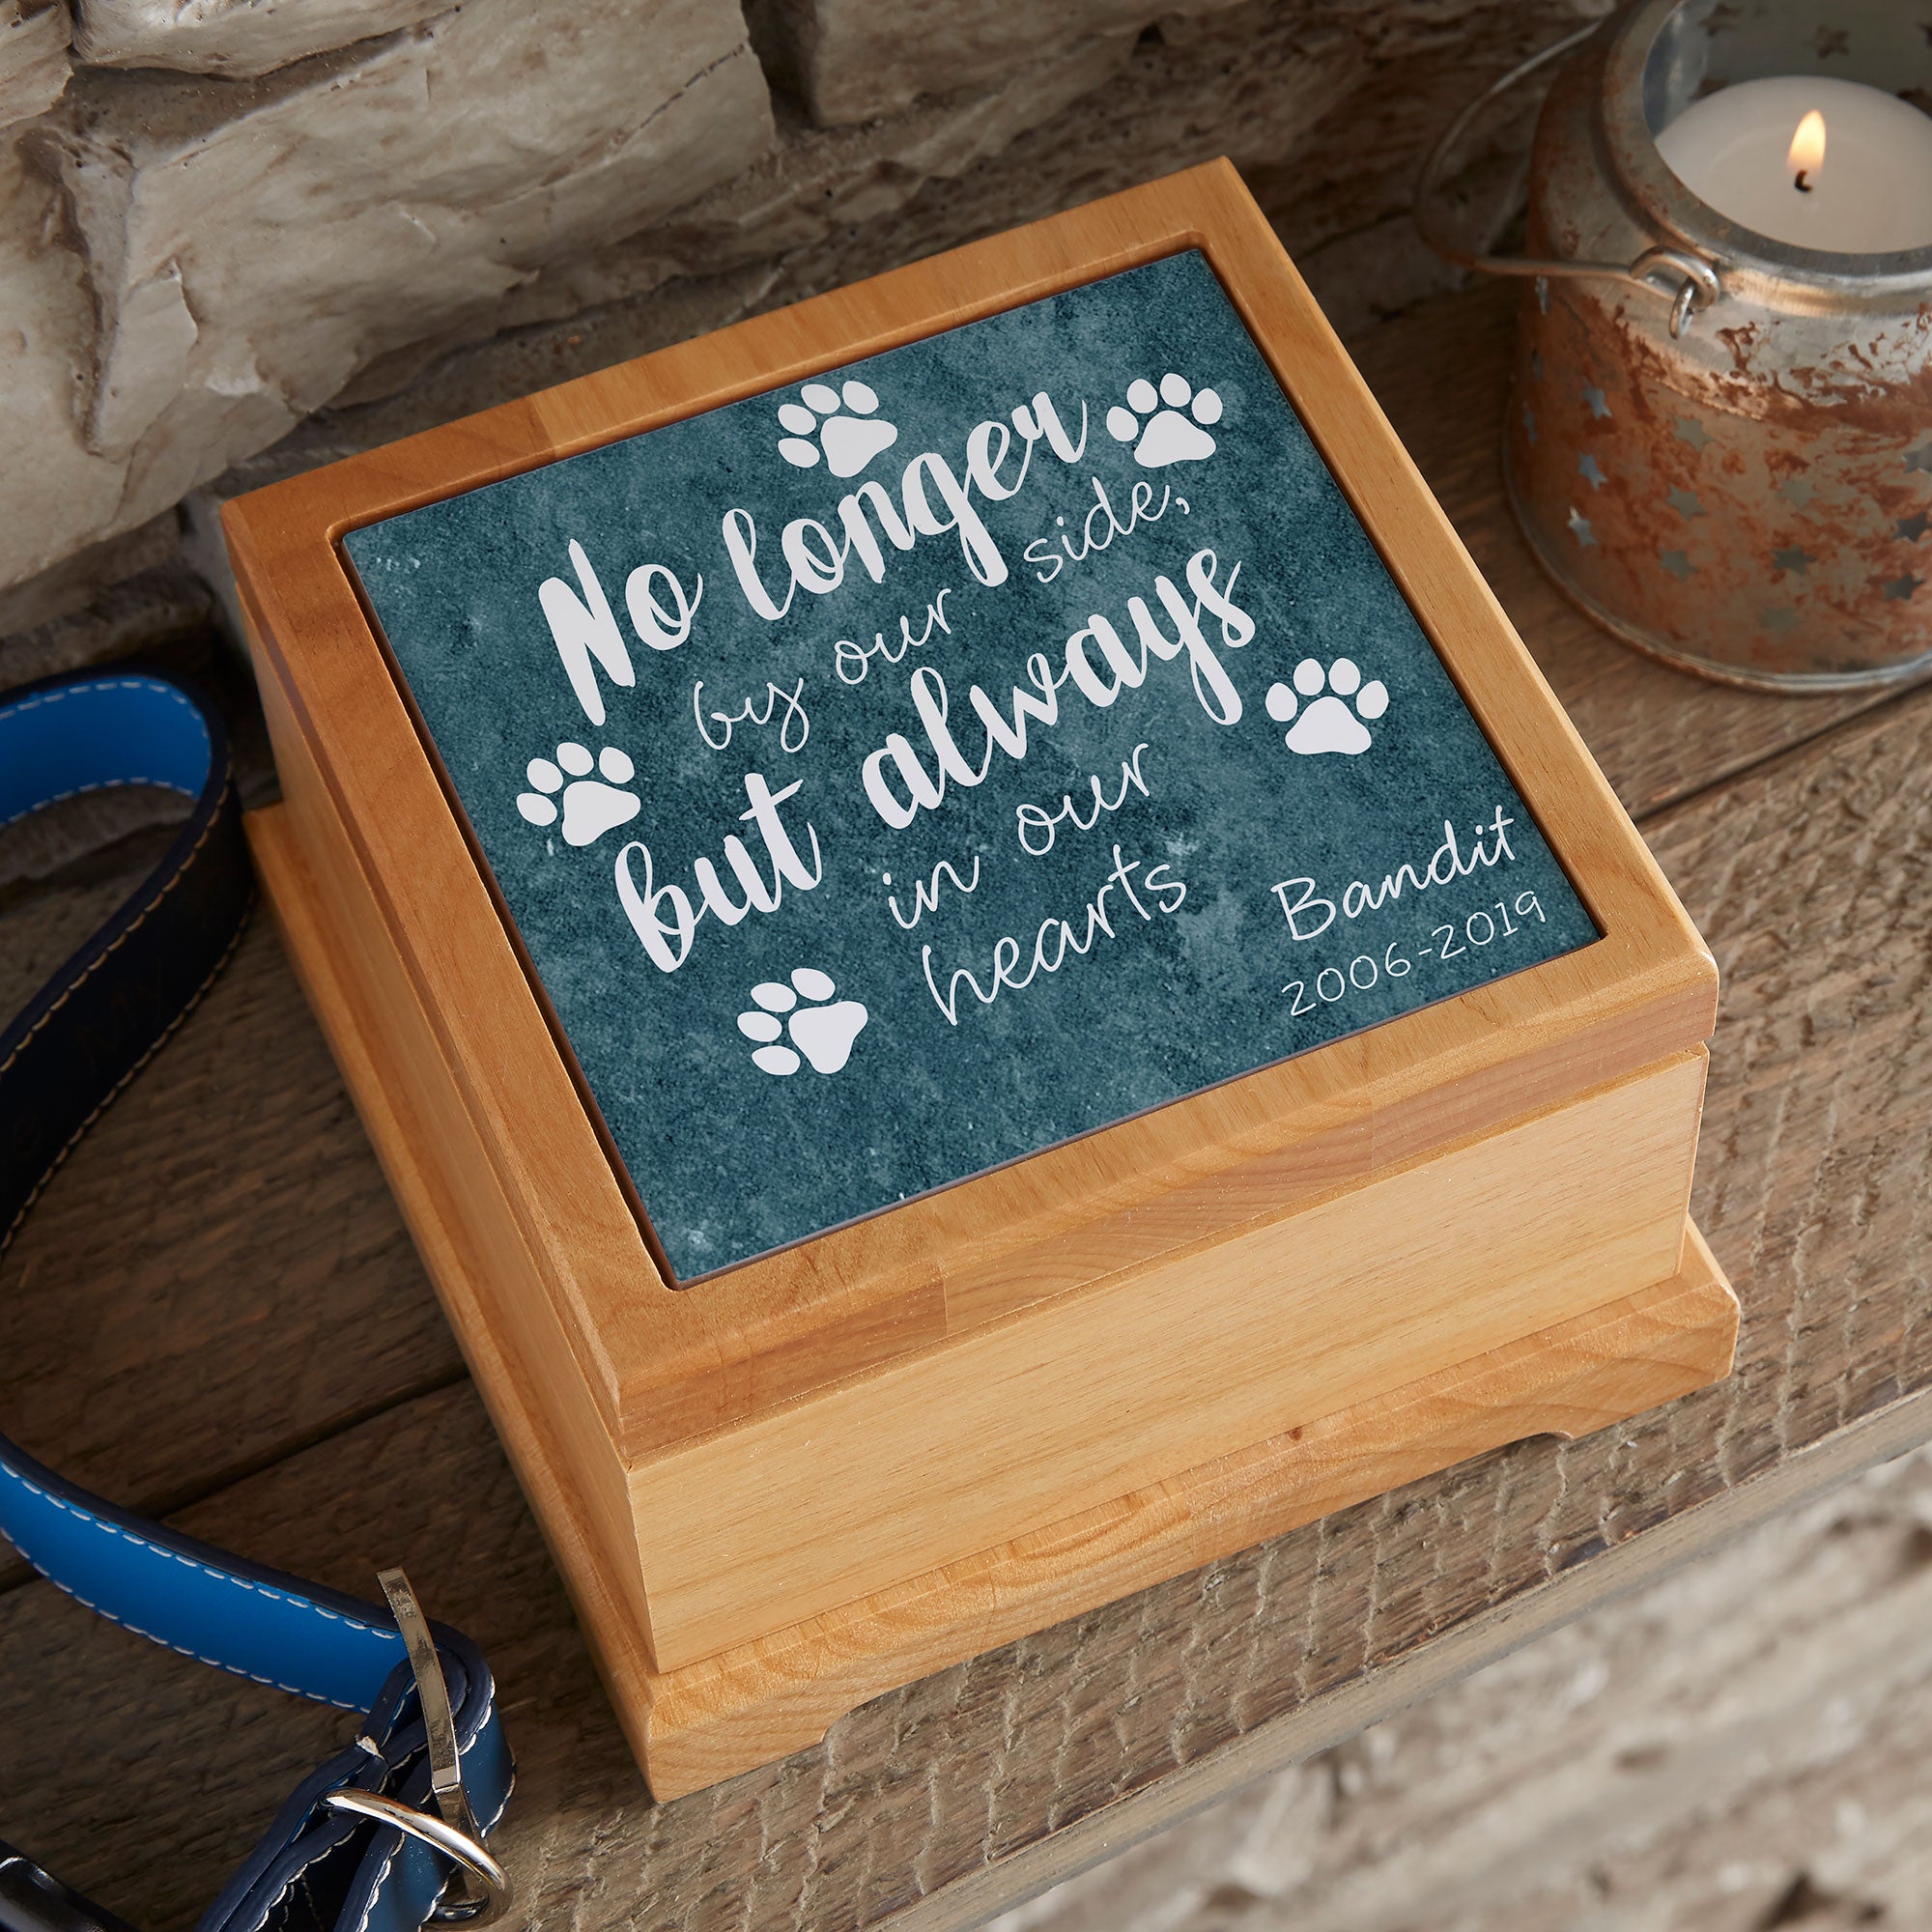 No longer
by our side,
but always
in our
hearts
Bandit
2006-2019